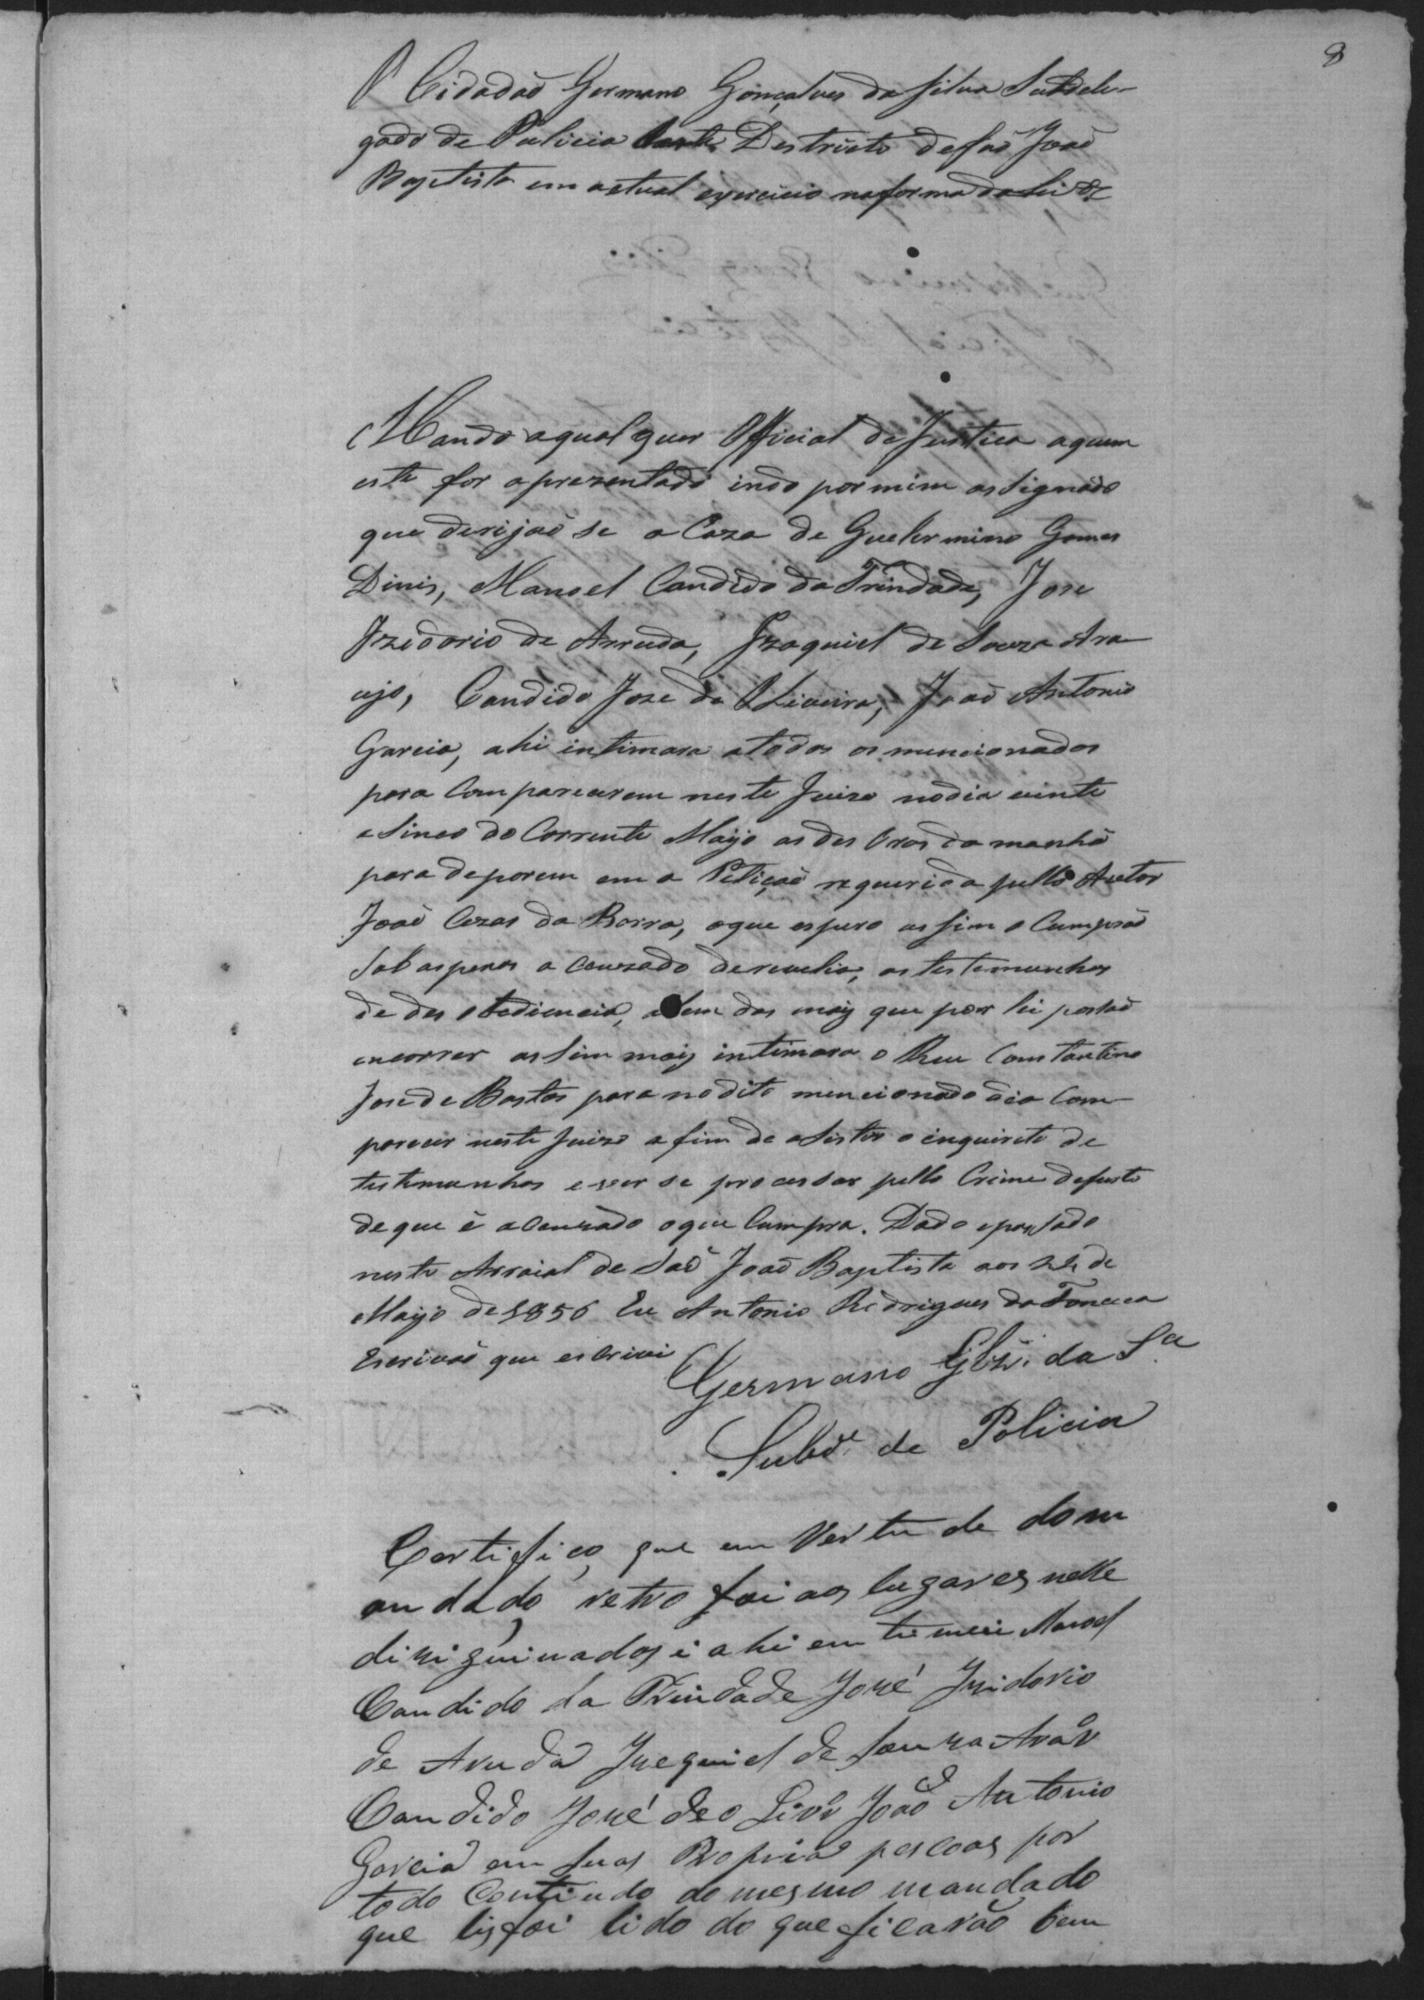 8
O Cidadaõ Germano Gonçalves da Silva Subdele-
gado de Policia deste Destricto de Saõ Joaõ
Baptista em actual exercicio na forma da Lei &
Mando a qual quer Official de Justica a quem
este for aprezentado indo por mim assignado
que derijaõ se a Caza de Guelhermino Gomes
Dinis, Manoel Candido da Trindade, Joze
Izedorio de Arruda, Izaquiel de Souza Ara
ujo, Candido Joze de Oliveira, Joaõ Antonio
Garcia, ahi intimara atodos os mencionados
para Comparecerem neste Juizo nodia vinte
e Sinco do Corrente Mayo as des Oras da manhã
para deporem em a Petiçaõ requerida pello Autor
Joaõ Cezar da Barra, oque espero assim o Cumpraõ
Sob as penas a Couzado derevelia, as testemunhas
de des obediencia, alem das mais que por lei possaõ
encorrer as Sim mais intimara o Reu Constantino
Joze de Bastos para nodito mencionado dia Com-
parecer neste Juizo afim de aSistir o inquirito de
testemunhas e ver se processar pello Crime defurto
de que é a Couzado oque Cumpra. Dado epassado
neste Arraial de Saõ Joaõ Baptista aos 24 de
Mayo de 1856 Eu Antonio Rodrigues da Fonceca
Escrivaõ que escrivi
Germano Glz. da Sa
Subde. de Policia
Certifico, que em Vertu de dom
andado retro foi aos lugares nelle
disiguinados i ahi em timei Manoel
Candido da Trindade José Izidorio
de Aruda Izequiel de Souza Araº
Candido José deo Livrª João Antonio
Garcia em Suas Propria pescoas por
todo Contiudo do mesmo mandado
que lis foi lido do que ficarão bem